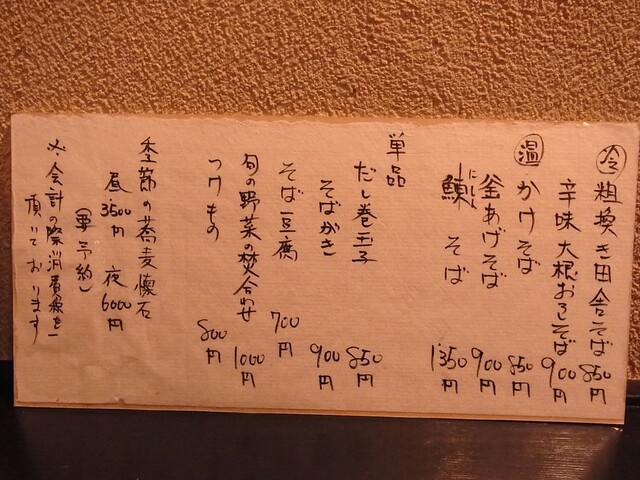 冷 粗挽き田舎そば 850円
辛味大根おろしそば 900円
温 かけそば 850円
釜あげそば 900円
鰊そば 1350円
にしん
単品
だし巻玉子 850円
そばがき 900円
そば豆腐 700円
旬の野菜の焚合わせ 1000円
つけもの 800円
季節の蕎麦懐石
昼3500円 夜6000円
(要予約)
※会計の際消費税を
頂いております